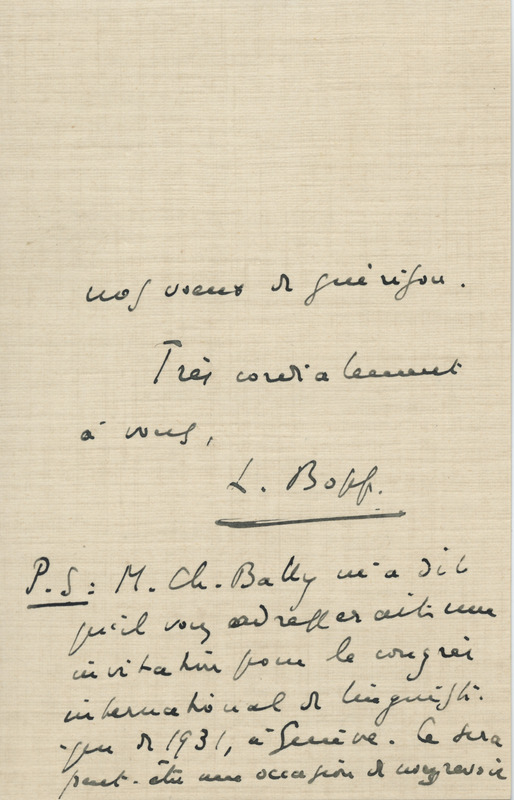 nos voeux de guérison.
Très cordialement
à vous,
L. Bopp.
P.S: M. Ch. Bally m'a dit
qu'il vous adresserait une
invitation pour le congrès
international de linguisti-
que de 1931, à Genève. Ce sera
peut-être une occasion de nous revoir